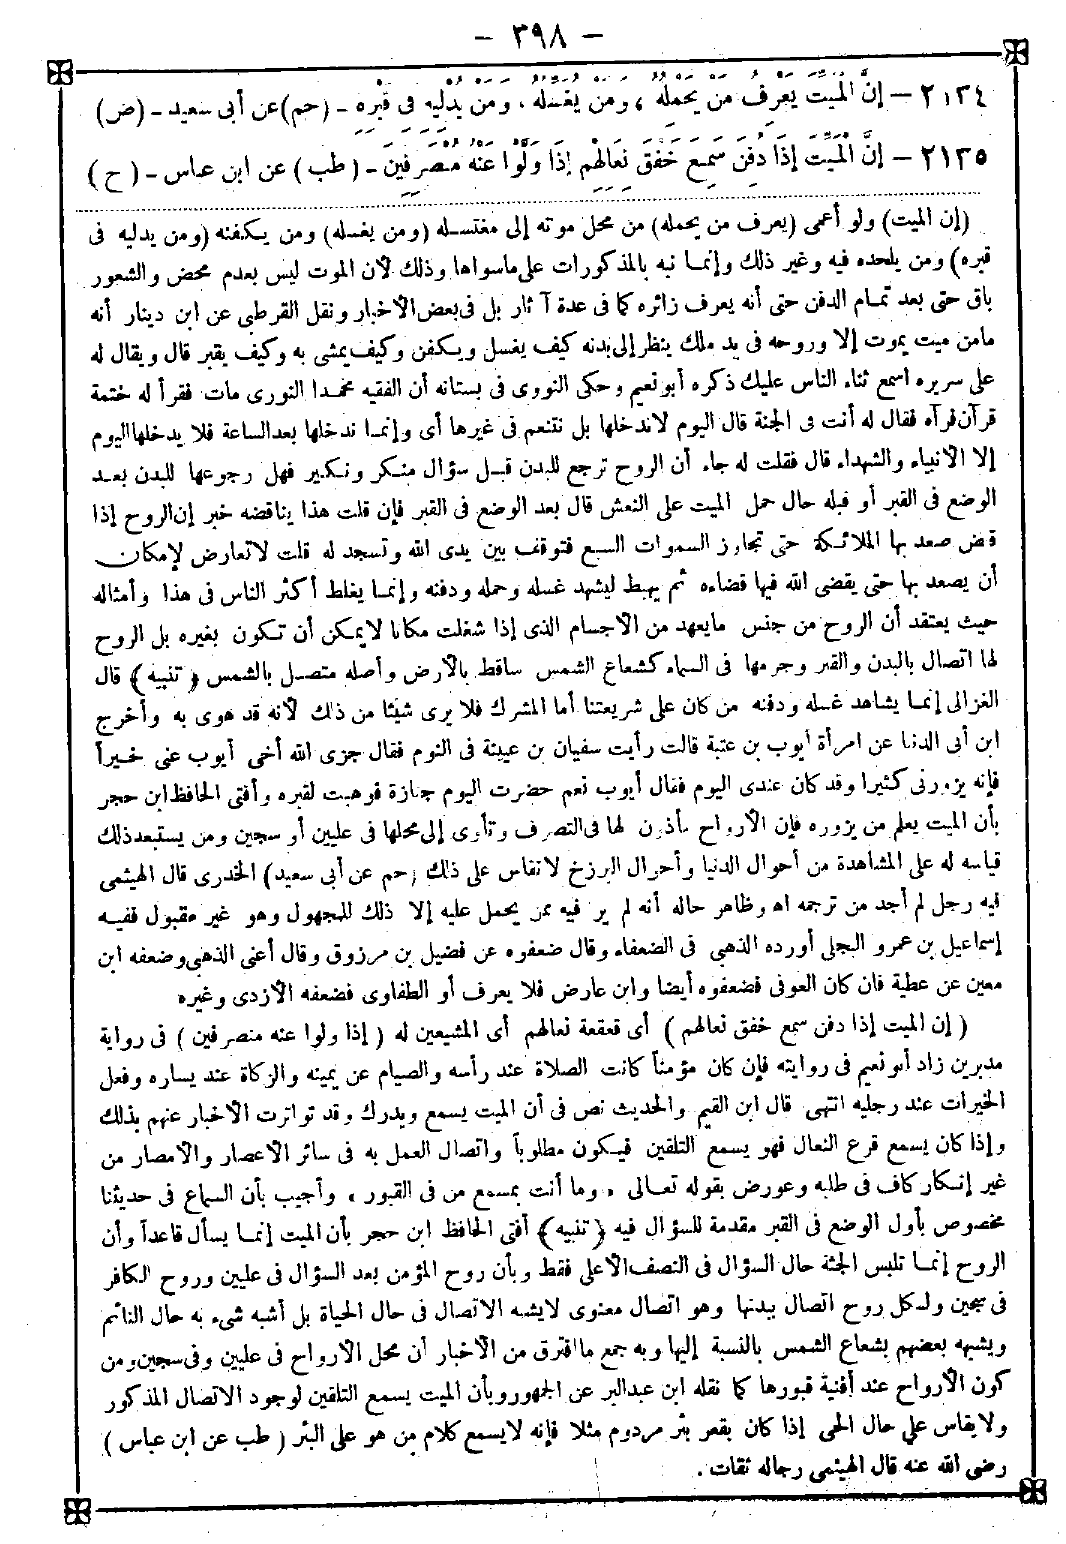 – ٣٩٨ –
٢١٣٤ – إِنَّ الْمَيِّتَ يَعْرِفُ مَنْ يَحْمِلُهُ ، وَمَنْ يُغَسِّلُهُ ، وَمَنْ يُدْلِيهِ فِي قَبْرِهِ – (حم) عن أبى سعيد – (ض)
٢١٣٥ – إِنَّ الْمَيِّتَ إِذَا دُفِنَ سَمِعَ خَفْقَ نِعَالِهِمْ إِذَا وَلَّوْا عَنْهُ مُنْصَرِفِينَ – ( طب ) عن ابن عباس – ( ح )
(إن الميت) ولو أعمى (يعرف من يحمله) من محل موته إلى مغتسله (ومن يغسله) ومن يكفنه (ومن يدليه فى
قبره) ومن يلحده فيه وغير ذلك وإنما نبه بالمذكورات على ماسواها وذلك لأن الموت ليس بعدم محض والشعور
باق حتى بعد تمام الدفن حتى أنه يعرف زائره كما فى عدة آثار بل فى بعض الأخبار ونقل القرطبى عن ابن دينار أنه
مامن ميت يموت إلا وروحه فى يد ملك ينظر إلى بدنه كيف يغسل ويكفن وكيف يمشى به وكيف يقبر قال ويقال له
على سريره اسمع ثناء الناس عليك ذكره أبو نعيم وحكى النووى فى بستانه أن الفقيه محمدا النورى مات فقرأ له ختمة
قرآن فرآه فقال له أنت فى الجنة قال اليوم لاندخلها بل نتنعم فى غيرها أى وإنما ندخلها بعد الساعة فلا يدخلها اليوم
إلا الأنبياء والشهداء قال فقلت له جاء أن الروح ترجع للبدن قبل سؤال منكر ونكير فهل رجوعها للبدن بعد
الوضع فى القبر أو قبله حال حمل الميت على النعش قال بعد الوضع فى القبر فإن قلت هذا يناقضه خبر إن الروح إذا
قبض صعد بها الملائكة حتى تجاوز السموات السبع فتوقف بين يدى الله وتسجد له قلت لاتعارض لإمكان
أن يصعد بها حتى يقضى الله فيها قضاءه ثم يهبط ليشهد غسله وحمله ودفنه وإنما يغلط أكثر الناس فى هذا وأمثاله
حيث يعتقد أن الروح من جنس مايعهد من الأجسام الذى إذا شغلت مكانا لايمكن أن تكون بغيره بل الروح
لها اتصال بالبدن والقبر وجرمها فى السماء كشعاع الشمس ساقط بالأرض وأصله متصل بالشمس (تنبيه) قال
الغزالى إنما يشاهد غسله ودفنه من كان على شريعتنا أما المشرك فلا يرى شيئا من ذلك لأنه قد هوى به وأخرج
ابن أبى الدنيا عن امرأة أيوب بن عتبة قالت رأيت سفيان بن عيينة فى النوم فقال جزى الله أخى أيوب عنى خيراً
فإنه يزورنى كثيرا وقد كان عندى اليوم فقال أيوب نعم حضرت اليوم جنازة فوهبت لقبره وأفتى الحافظ ابن حجر
بأن الميت يعلم من يزوره فإن الأرواح مأذون لها فى التصرف وتأوى إلى محلها فى عليين أو سجين ومن يستبعد ذلك
قياسه له على المشاهدة من أحوال الدنيا وأحوال البرزخ لاتقاس على ذلك (حم عن أبى سعيد) الخدرى قال الهيثمى
فيه رجل لم أجد من ترجمه اه وظاهر حاله أنه لم ير فيه ممن يحمل عليه إلا ذلك للمجهول وهو غير مقبول ففيه
إسماعيل بن عمرو البجلى أورده الذهبى فى الضعفاء وقال ضعفوه عن فضيل بن مرزوق وقال أعنى الذهبى وضعفه ابن
معين عن عطية فان كان العوفى فضعفوه أيضا وابن عارض فلا يعرف أو الطفاوى فضعفه الأزدى وغيره
( إن الميت إذا دفن سمع خفق نعالهم ) أى قعقعة نعالهم أى المشيعين له ( إذا ولوا عنه منصرفين ) فى رواية
مدبرين زاد أبو نعيم فى روايته فإن كان مؤمناً كانت الصلاة عند رأسه والصيام عن يمينه والزكاة عند يساره وفعل
الخيرات عند رجليه انتهى قال ابن القيم والحديث نص فى أن الميت يسمع ويدرك وقد تواترت الأخبار عنهم بذلك
وإذا كان يسمع قرع النعال فهو يسمع التلقين فيكون مطلوباً واتصال العمل به فى سائر الأعصار والأمصار من
غير إنكار كاف فى طلبه وعورض بقوله تعالى « وما أنت بمسمع من فى القبور » وأجيب بأن السماع فى حديثنا
مخصوص بأول الوضع فى القبر مقدمة للسؤال فيه (تنبيه) أفتى الحافظ ابن حجر بأن الميت إنما يسأل قاعداً وأن
الروح إنما تلبس الجثة حال السؤال فى النصف الأعلى فقط وبأن روح المؤمن بعد السؤال فى عليين وروح الكافر
فى سجين ولكل روح اتصال ببدنها وهو اتصال معنوى لايشبه الاتصال فى حال الحياة بل أشبه شىء به حال النائم
ويشبهه بعضهم بشعاع الشمس بالنسبة إليها وبه جمع ماافترق من الأخبار أن محل الأرواح فى عليين وفى سجين ومن
كون الأرواح عند أفنية قبورها كما نقله ابن عبدالبر عن الجمهور وبأن الميت يسمع التلقين لوجود الاتصال المذكور
ولايقاس على حال الحى إذا كان بقعر بئر مردوم مثلا فإنه لايسمع كلام من هو على البئر ( طب عن ابن عباس )
رضى الله عنه قال الهيثمى رجاله ثقات .